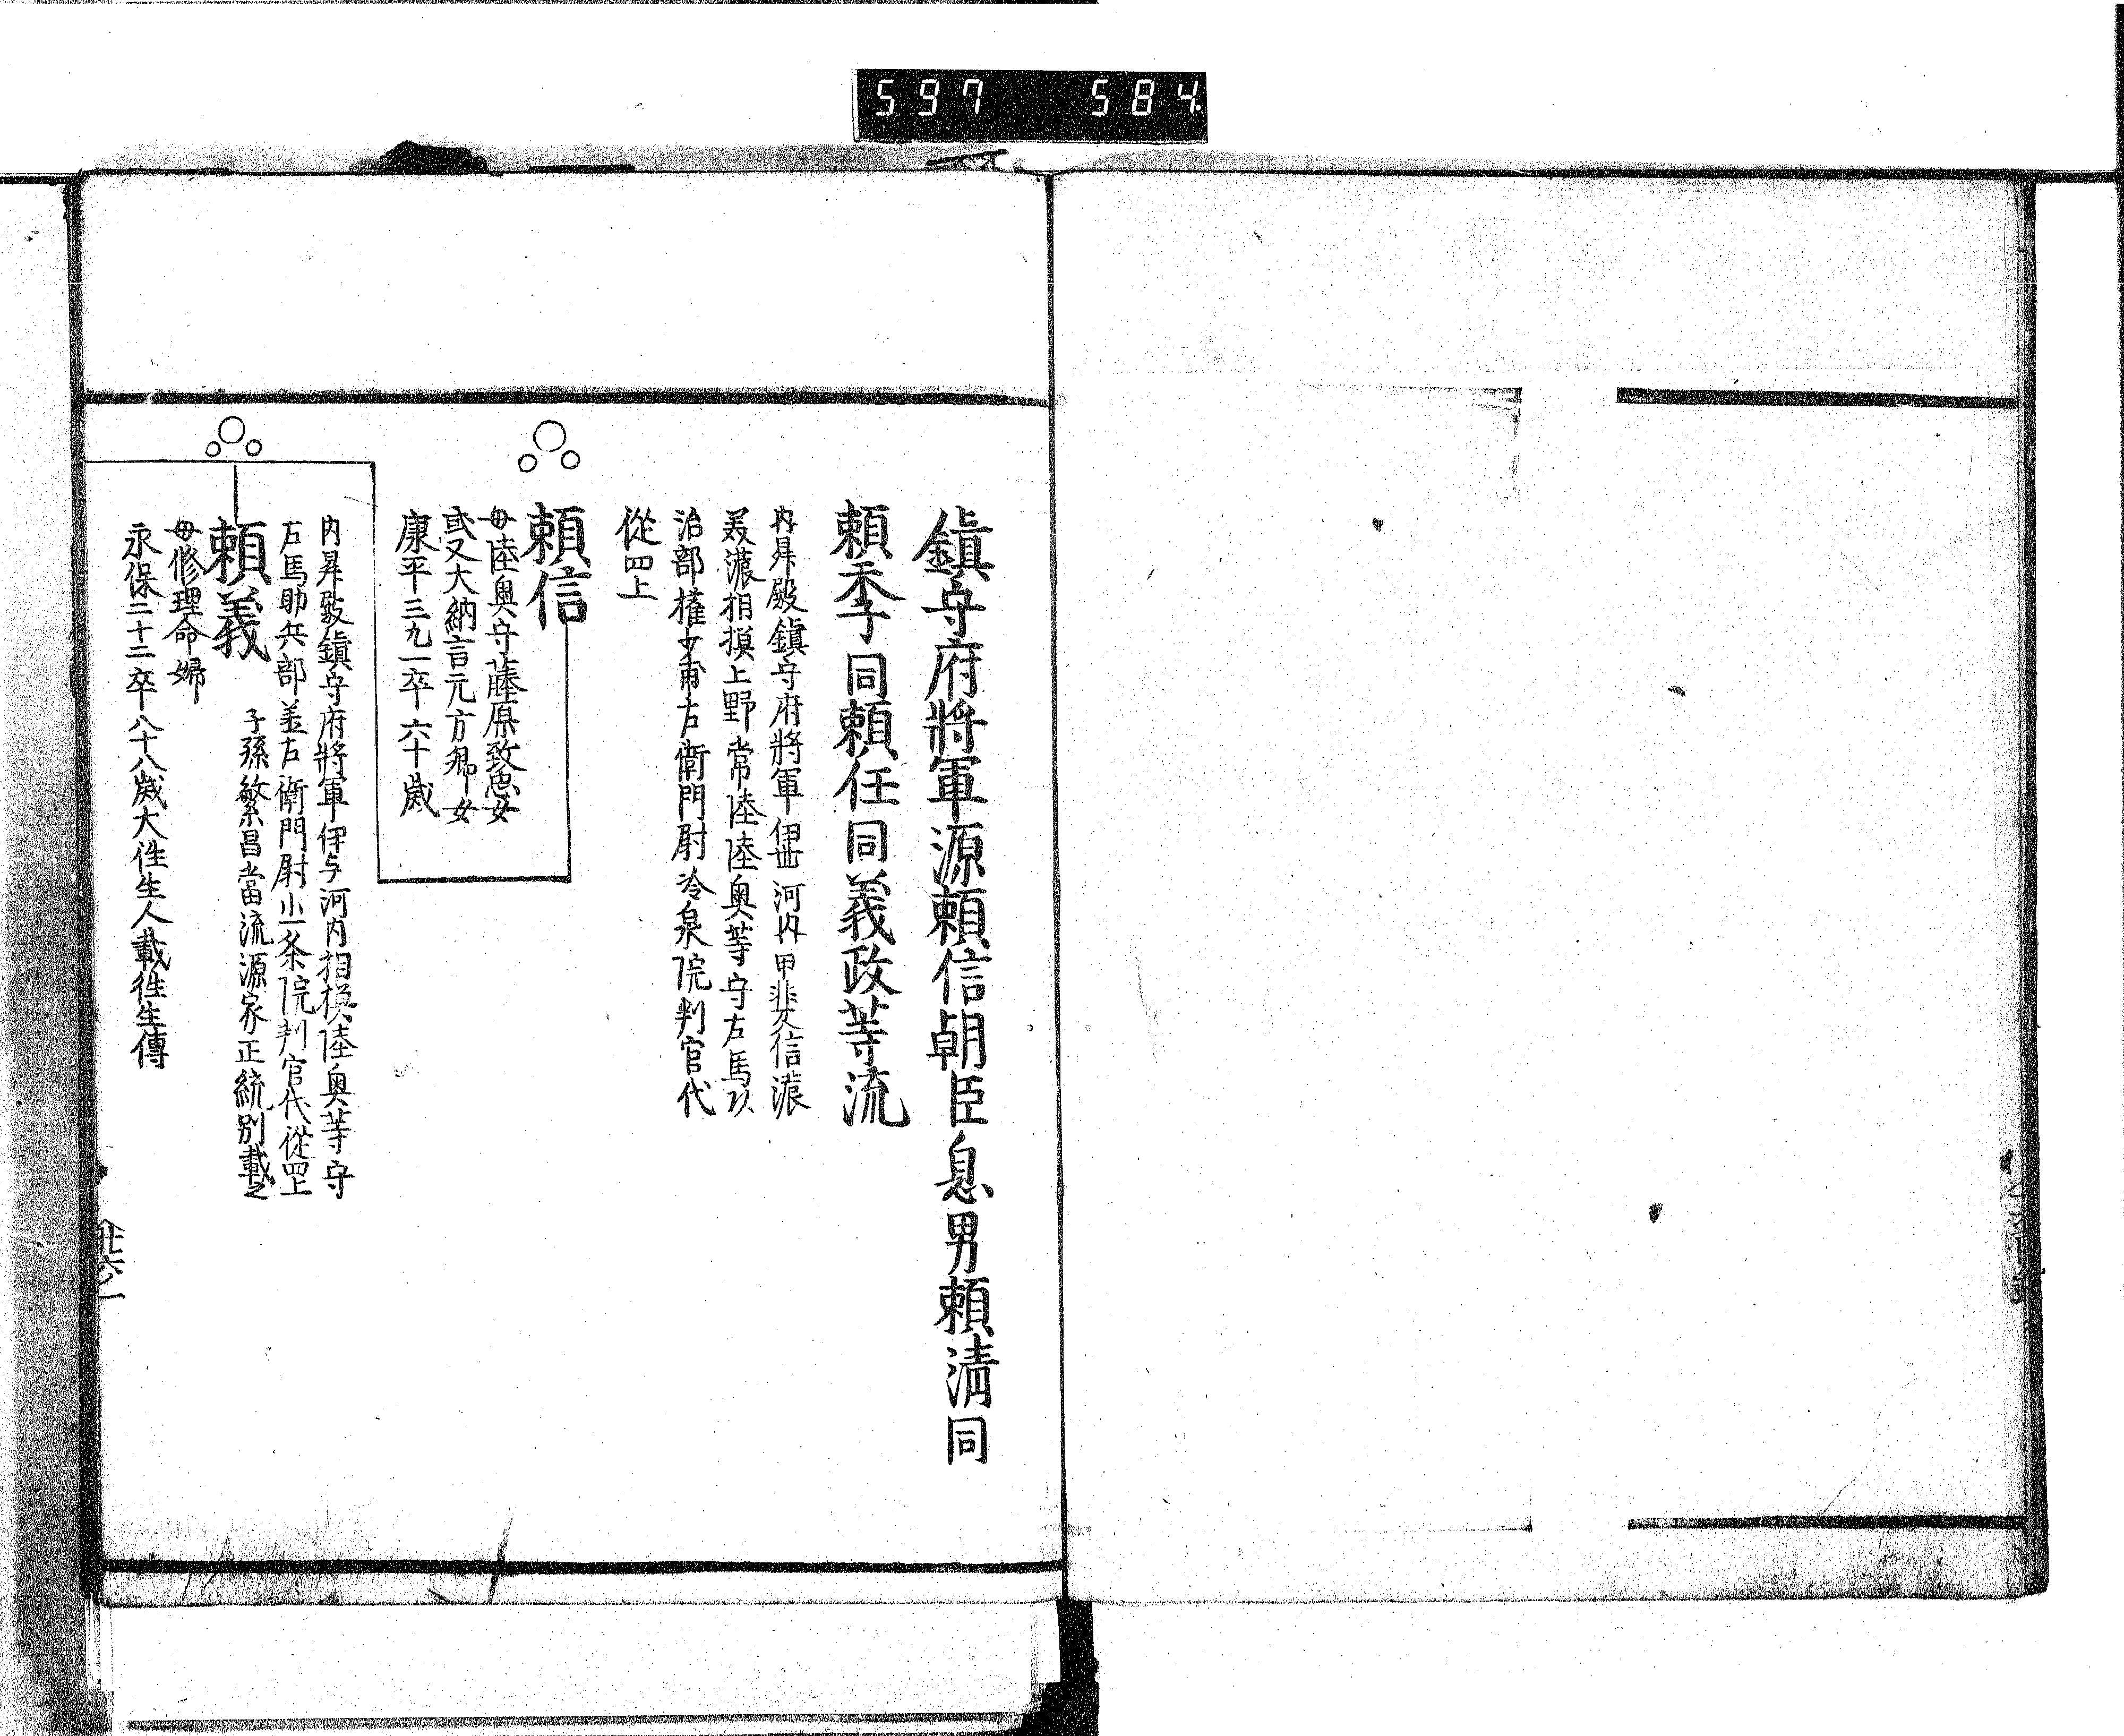 597 584
鎮守府將軍源頼信朝臣息男頼清同
頼季同頼任同義政等流
内昇殿鎮守府將軍伊世河内甲斐信濃
美濃相摸上野常陸陸奥等守左馬以
治部權少甫右衛門尉冷泉院判官代
從四上
頼信
母陸奥守藤原致忠女
或又大納言元方卿女
康平三九一卒六十歳
内昇殿鎮守府將軍伊与河内相摸陸奥等守
左馬助兵部並左衛門尉小一条院判官代從四上
子孫繁昌當流源家正統別載之
頼義
母修理命婦
永保二十二卒八十八歳大往生人載往生傳